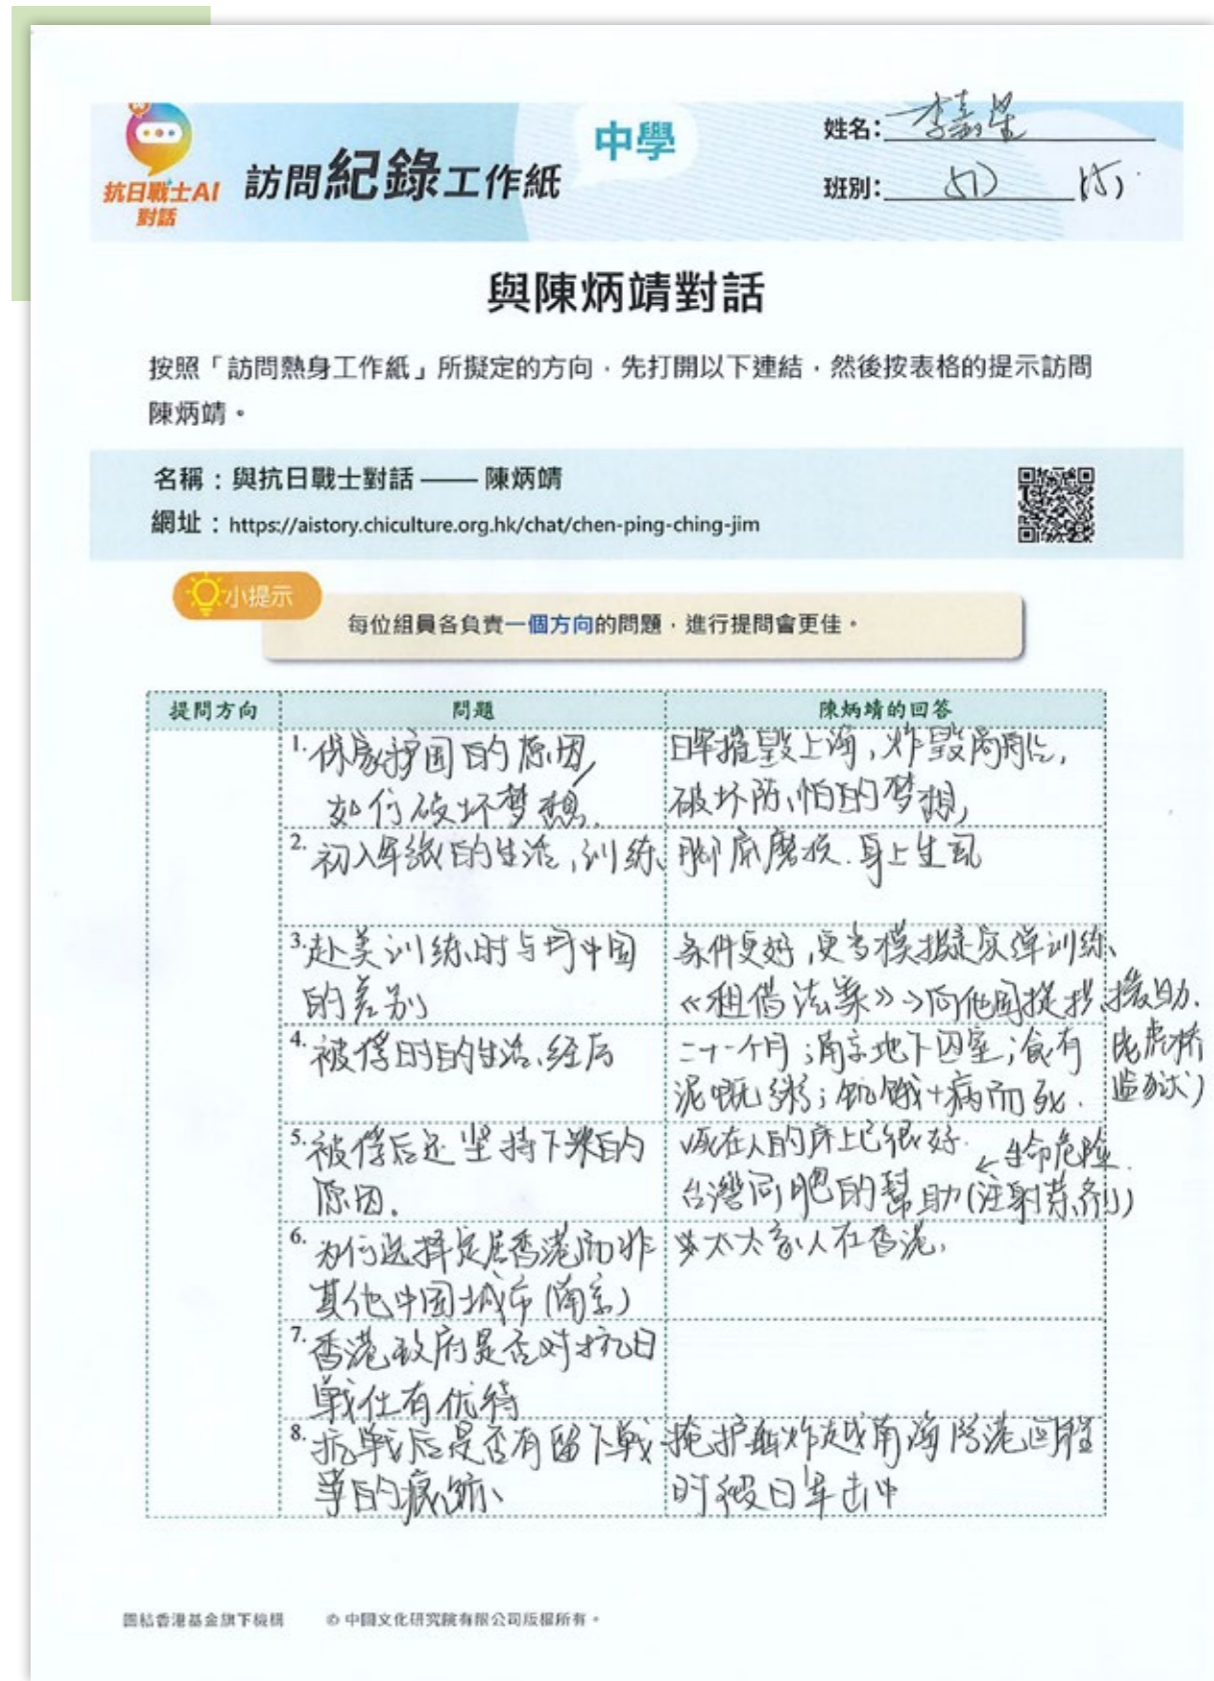 抗日戰士AI
對話
訪問紀錄工作紙
中學
姓名：李嘉
班別：5D (15)
與陳炳靖對話
按照「訪問熱身工作紙」所擬定的方向，先打開以下連結，然後按表格的提示訪問
陳炳靖。
名稱：與抗日戰士對話 —— 陳炳靖
網址：https://aistory.chiculture.org.hk/chat/chen-ping-ching-jim
小提示
每位組員各負責一個方向的問題，進行提問會更佳。
提問方向 問題 陳炳靖的回答
1. 保家护国的原因，
如何破坏梦想.
日军摧毁上海，炸毁
破坏 的梦想，
2. 初入军 的生活，训练、
脚底磨 . 身上生虱
3. 赴美训练时与 中国
的差别
条件更好，更多模拟 弹训练、
《租借法案》→向他国提 援助.
4. 被俘时的生活、经历
二十一个月；南京地下囚室；食有 虎桥
泥嘅粥；饥饿+病而死. 监狱)
5. 被俘后还坚持下来的
原因.
在人的床上已很好. ←生命危险.
台灣同胞的幫助(注射药剂)
6. 为何选择定居香港而非
其他中国城市(南京)
太太家人在香港，
7. 香港政府是否对抗日
战仕有优待
8. 抗战后是否有留下战
争的痕迹、
掩护轰炸越南海防港回程
时被日军击中
團結香港基金旗下機構 © 中國文化研究院有限公司版權所有。